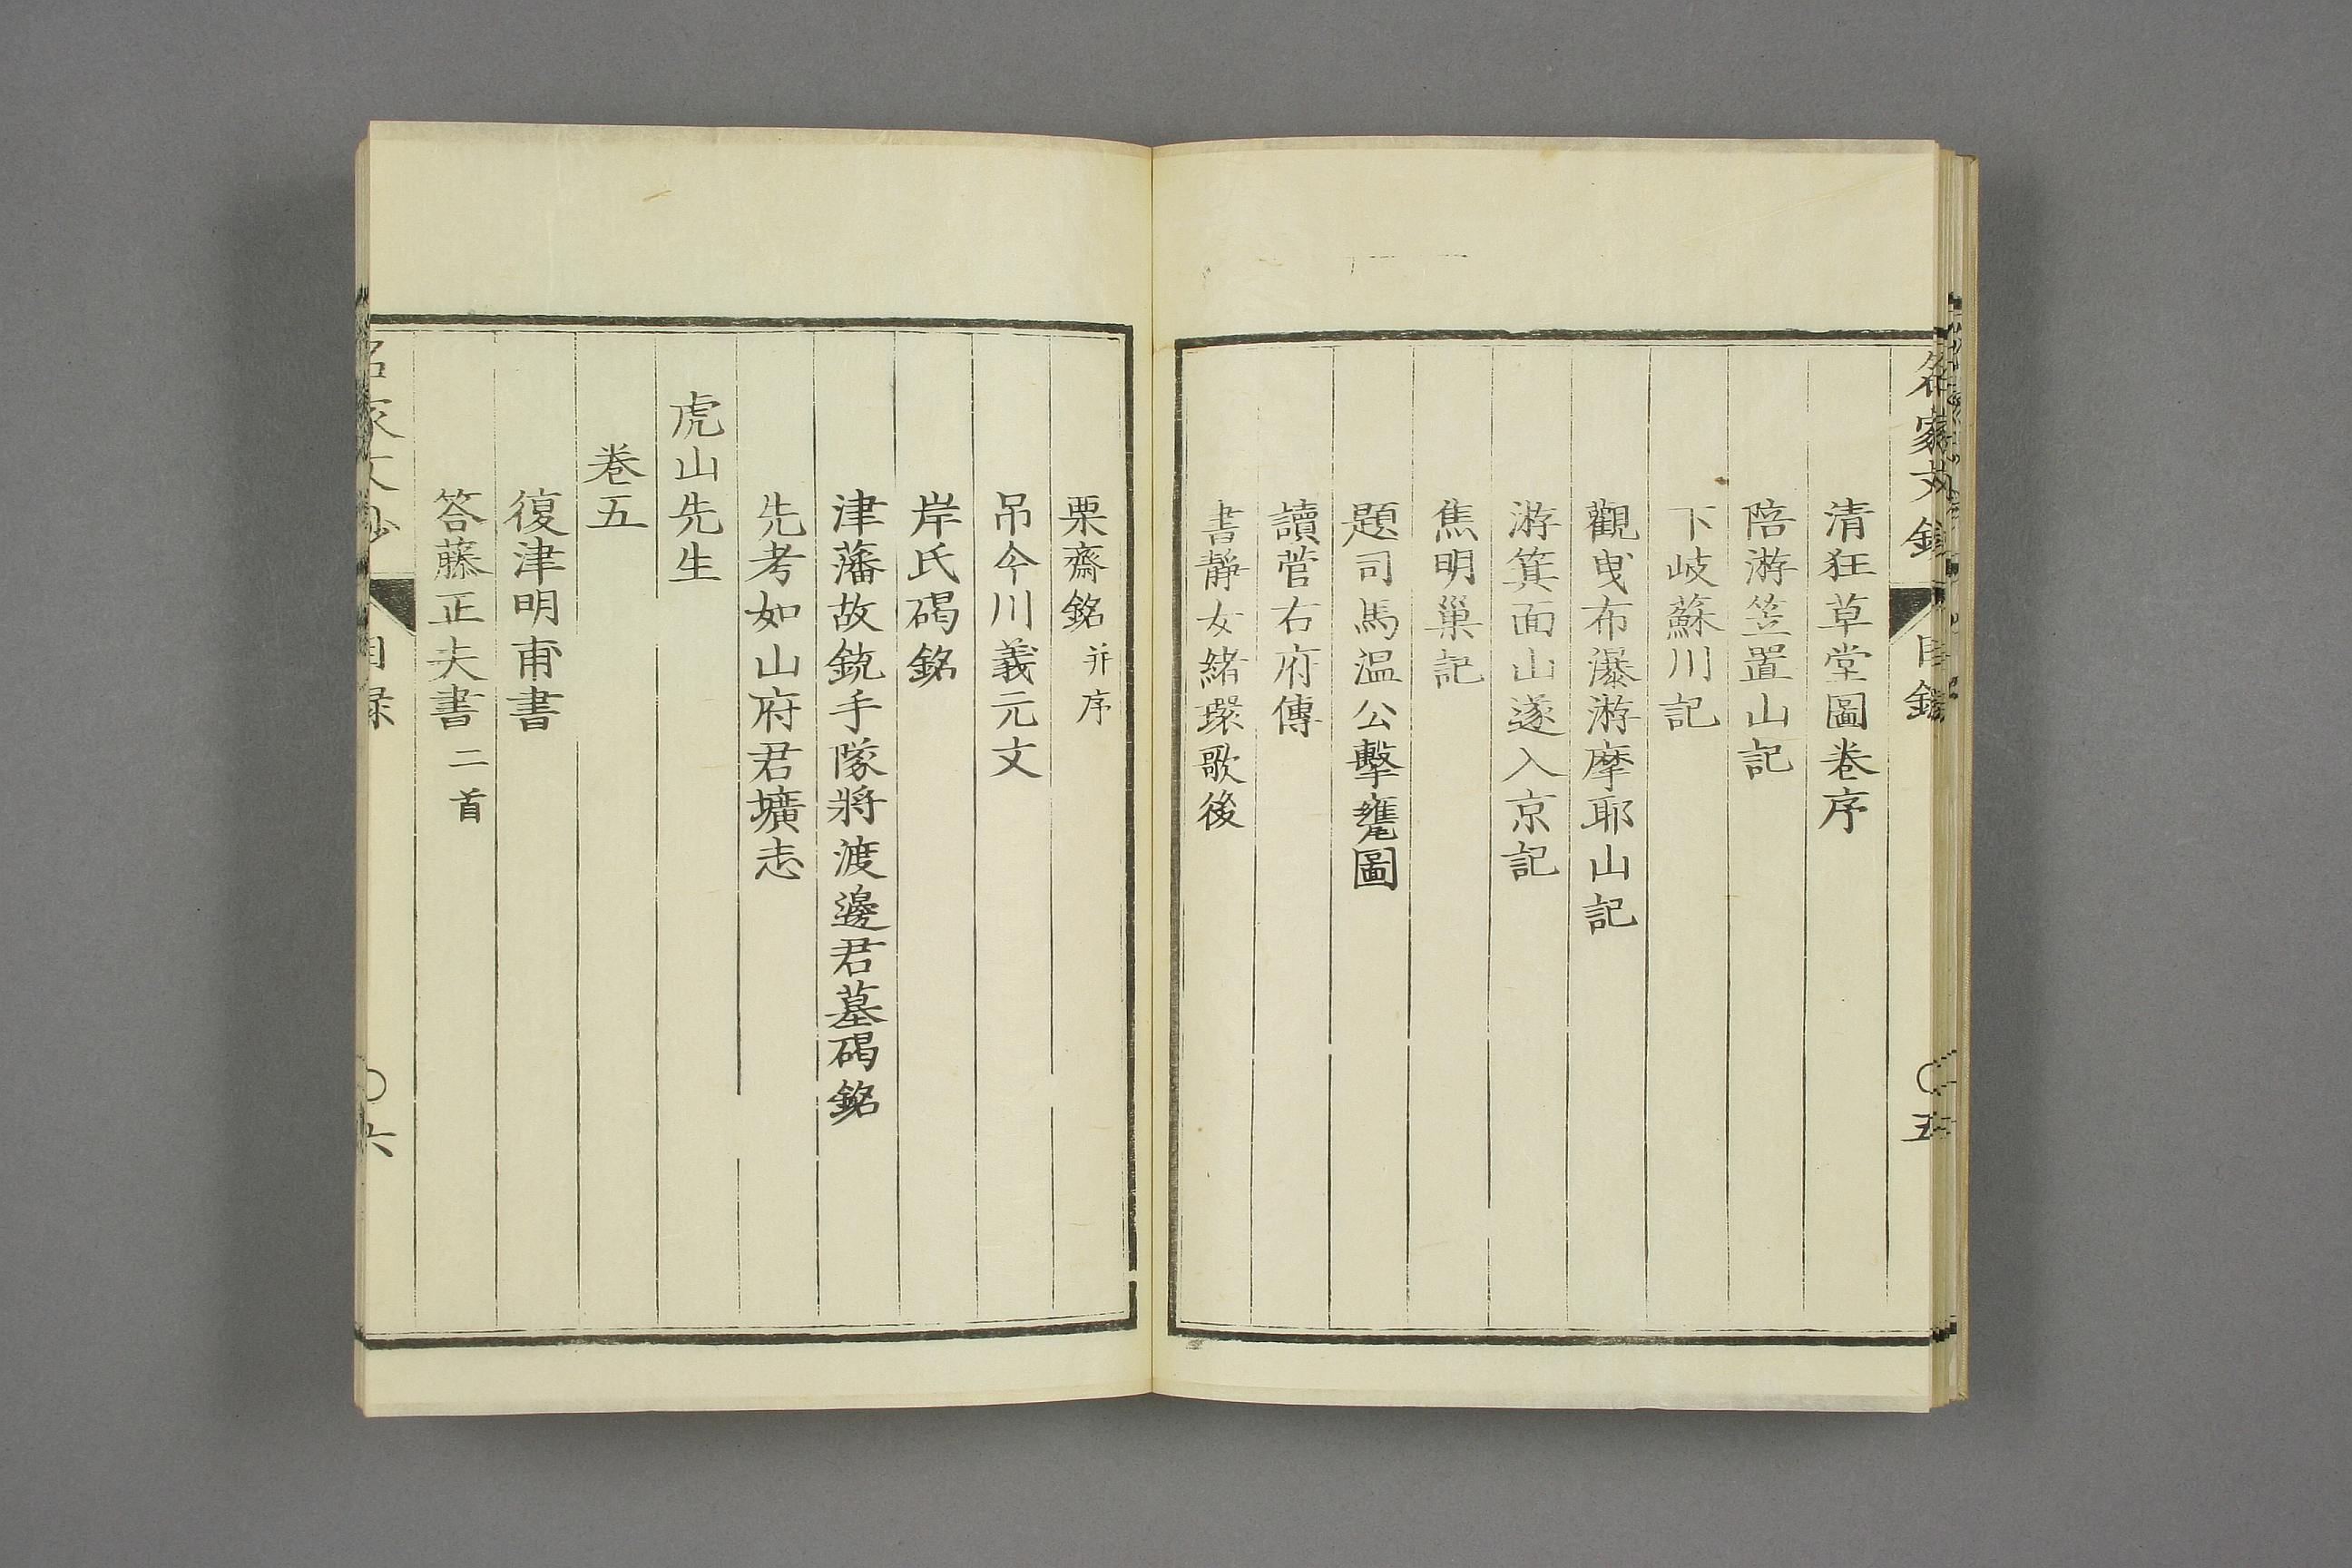 清狂草堂圖卷序
陪游笠置山記
下岐蘇川記
觀曳布瀑游摩耶山記
游箕面山遂入京記
焦明巢記
題司馬温公擊甕圖
讀菅右府傳
書靜女緒環歌後
栗齋銘 并序
吊今川義元文
岸氏碣銘
津藩故銃手隊將渡邊君墓碣銘
先考如山府君壙志
虎山先生
卷五
復津明甫書
答藤正夫書 二首
目録
六